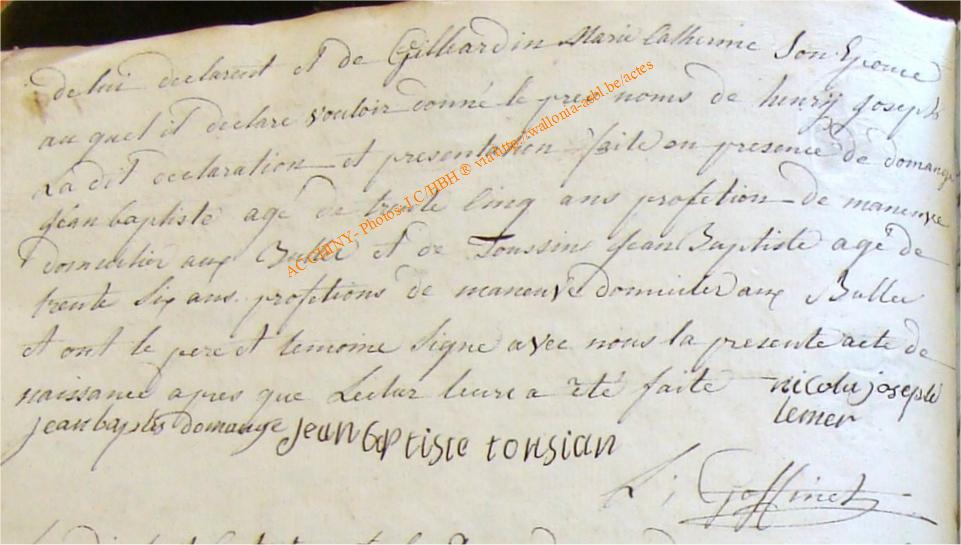 de lui declarent et de Gilleardin Marie Catherine Son Epouse
au quel il declare vouloir donné le prée noms de henry joseph
La dit declaration et presentation faite en presence de domange
jéan baptiste agé de trente Cinq ans profetion de maneuvre
domicilier aux Bulle et de Toussin Jean Baptiste agé de
trente Six ans profetions de maneuvé domicilié aux Bulle
et ont le pere et temoine Signe avec nous la presente acte de
naissance apres que Lectur leur a été faite nicola joseph
lemer
jean baptis domange jean baptiste tonsian
L; Goffinet
ACCHINY- Photos- J.C/HBH ® via http://wallonia-asbl.be/actes